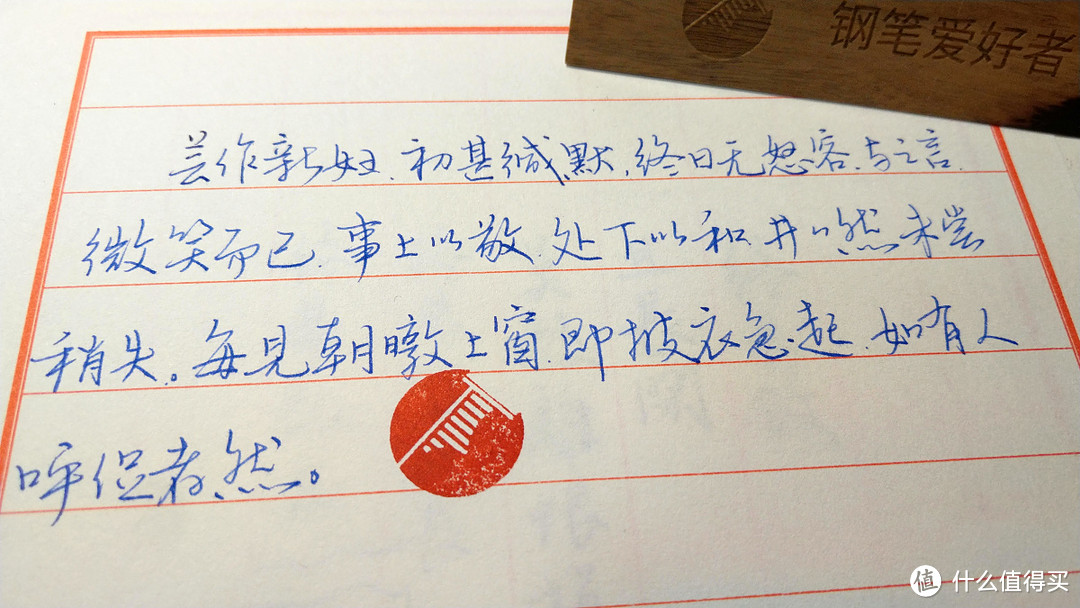 钢笔爱好者
芸作新妇.初甚缄默.终日无怒容.与之言.
微笑而已.事上以敬.处下以和.井井然未尝
稍失。每见朝暾上窗.即披衣急起.如有人
呼促者然。
值 什么值得买